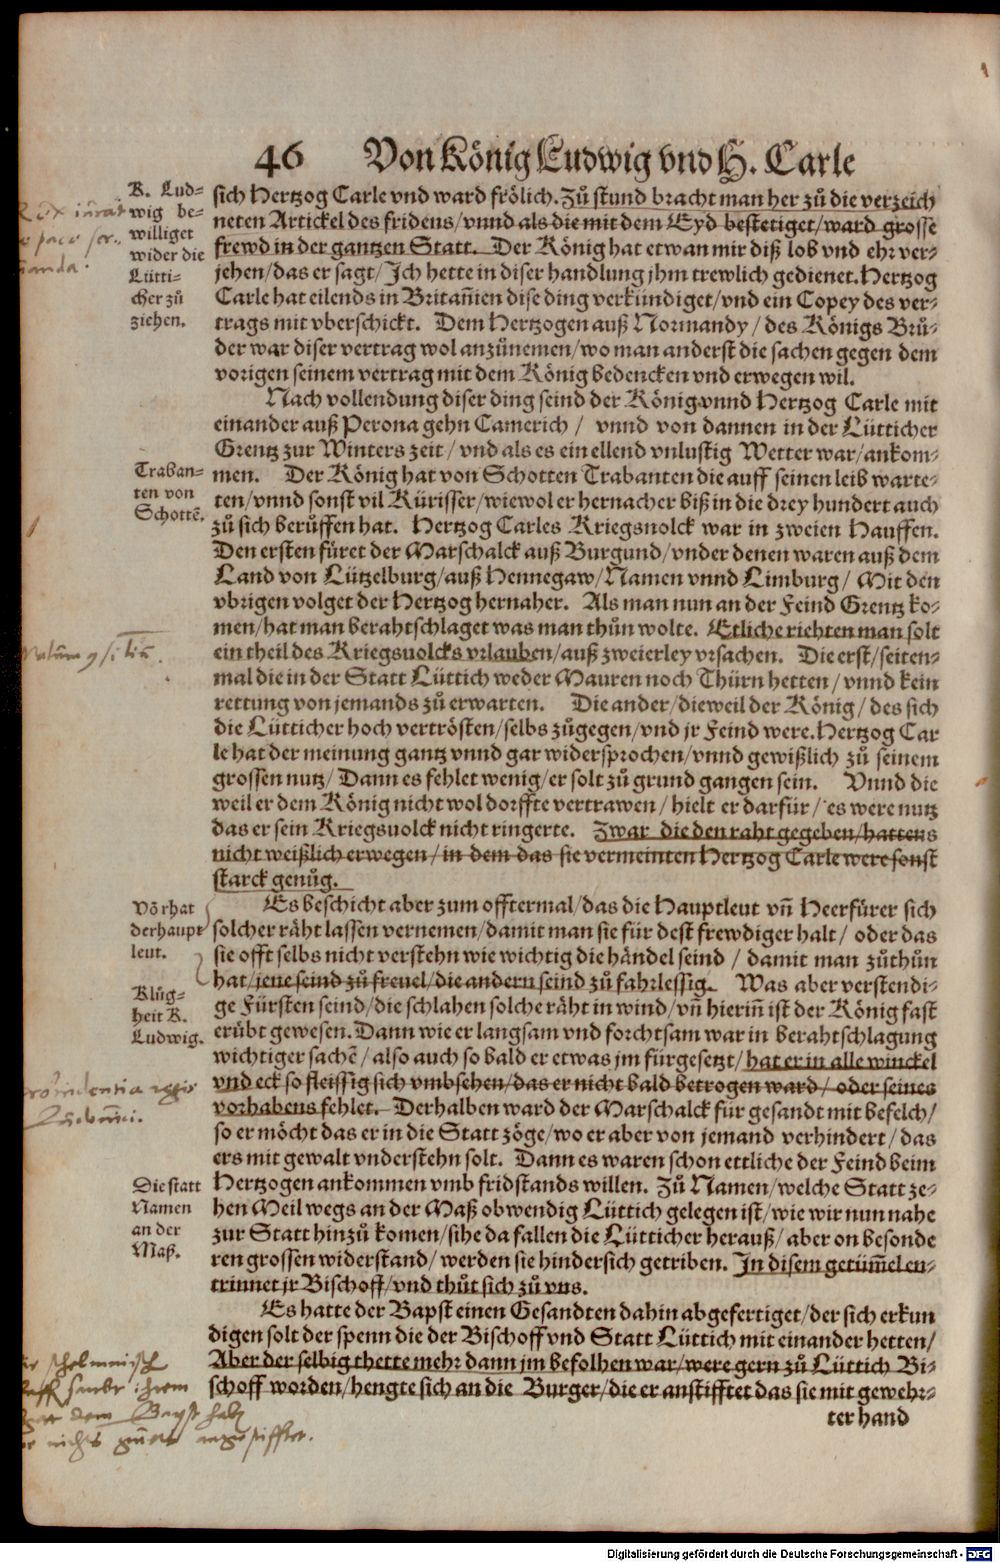 46 Von König Ludwig vnd H. Carle
K. Lud=
wig be=
williget
wider die
Lütti=
cher zů
ziehen.
sich Hertzog Carle vnd ward frölich. Zů stund bracht man her zů die verzeich
neten Artickel des fridens/vnnd als die mit dem Eyd bestetiget/ward grosse
frewd in der gantzen Statt. Der König hat etwan mir diß lob vnd ehr ver=
jehen/das er sagt/Ich hette in diser handlung jhm trewlich gedienet. Hertzog
Carle hat eilends in Britañien dise ding verkündiget/vnd ein Copey des ver=
trags mit vberschickt. Dem Hertzogen auß Normandy/des Königs Brů=
der war diser vertrag wol anzůnemen/wo man anderst die sachen gegen dem
vorigen seinem vertrag mit dem König bedencken vnd erwegen wil.
Nach vollendung diser ding seind der König vnnd Hertzog Carle mit
einander auß Perona gehn Camerich/ vnnd von dannen in der Lütticher
Grentz zur Winters zeit/vnd als es ein ellend vnlustig Wetter war/ankom=
Traban=
ten von
Schottẽ.
men. Der König hat von Schotten Trabanten die auff seinen leib warte=
ten/vnnd sonst vil Kürisser/wiewol er hernacher biß in die drey hundert auch
zů sich berůffen hat. Hertzog Carles Kriegsuolck war in zweien Hauffen.
Den ersten füret der Marschalck auß Burgund/vnder denen waren auß dem
Land von Lützelburg/auß Hennegaw/Namen vnnd Limburg/ Mit den
vbrigen volget der Hertzog hernaher. Als man nun an der Feind Grentz ko=
men/hat man berahtschlaget was man thůn wolte. Etliche riehten man solt
ein theil des Kriegsuolcks vrlauben/auß zweierley vrsachen. Die erst/seiten=
mal die in der Statt Lüttich weder Mauren noch Thürn hetten/vnnd kein
rettung von jemands zů erwarten. Die ander/dieweil der König/des sich
die Lütticher hoch vertrösten/selbs zůgegen/vnd jr Feind were. Hertzog Car
le hat der meinung gantz vnnd gar widersprochen/vnnd gewißlich zů seinem
grossen nutz/Dann es fehlet wenig/er solt zů grund gangen sein. Vnnd die
weil er dem König nicht wol dorffte vertrawen/hielt er darfür/es were nutz
das er sein Kriegsuolck nicht ringerte. Zwar die den raht gegeben/hattens
nicht weißlich erwegen/in dem das sie vermeinten Hertzog Carle were sonst
starck genůg.
Võ rhat
der haupt
leut.
Es beschicht aber zum offtermal/das die Hauptleut vñ Heerfürer sich
solcher räht lassen vernemen/damit man sie für dest frewdiger halt/ oder das
sie offt selbs nicht verstehn wie wichtig die händel seind/ damit man zůthůn
hat/jene seind zů freuel/die andern seind zů fahrlessig. Was aber verstendi=
Klůg=
heit K.
Ludwig.
ge Fürsten seind/die schlahen solche räht in wind/vñ hieriñ ist der König fast
erübt gewesen. Dann wie er langsam vnd forchtsam war in berahtschlagung
wichtiger sachẽ/also auch so bald er etwas jm fürgesetzt/hat er in alle winckel
vnd eck so fleissig sich vmbsehen/das er nicht bald betrogen ward/oder seines
vorhabens fehlet. Derhalben ward der Marschalck für gesandt mit befelch/
so er möcht das er in die Statt zöge/wo er aber von jemand verhindert/das
ers mit gewalt vnderstehn solt. Dann es waren schon ettliche der Feind beim
Die statt
Namen
an der
Maß.
Hertzogen ankommen vmb fridstands willen. Zů Namen/welche Statt ze=
hen Meil wegs an der Maß obwendig Lüttich gelegen ist/wie wir nun nahe
zur Statt hinzů komen/sihe da fallen die Lütticher herauß/aber on besonde
ren grossen widerstand/werden sie hindersich getriben. In disem getüm̃el en=
trinnet jr Bischoff/vnd thůt sich zů vns.
Es hatte der Bapst einen Gesandten dahin abgefertiget/der sich erkun
digen solt der spenn die der Bischoff vnd Statt Lüttich mit einander hetten/
Aber der selbig thette mehr dann jm befolhen war/were gern zů Lüttich Bi=
schoff worden/hengte sich an die Burger/die er anstifftet das sie mit gewehr=
ter hand
providentia regis
Digitalisierung gefördert durch die Deutsche Forschungsgemeinschaft - DFG